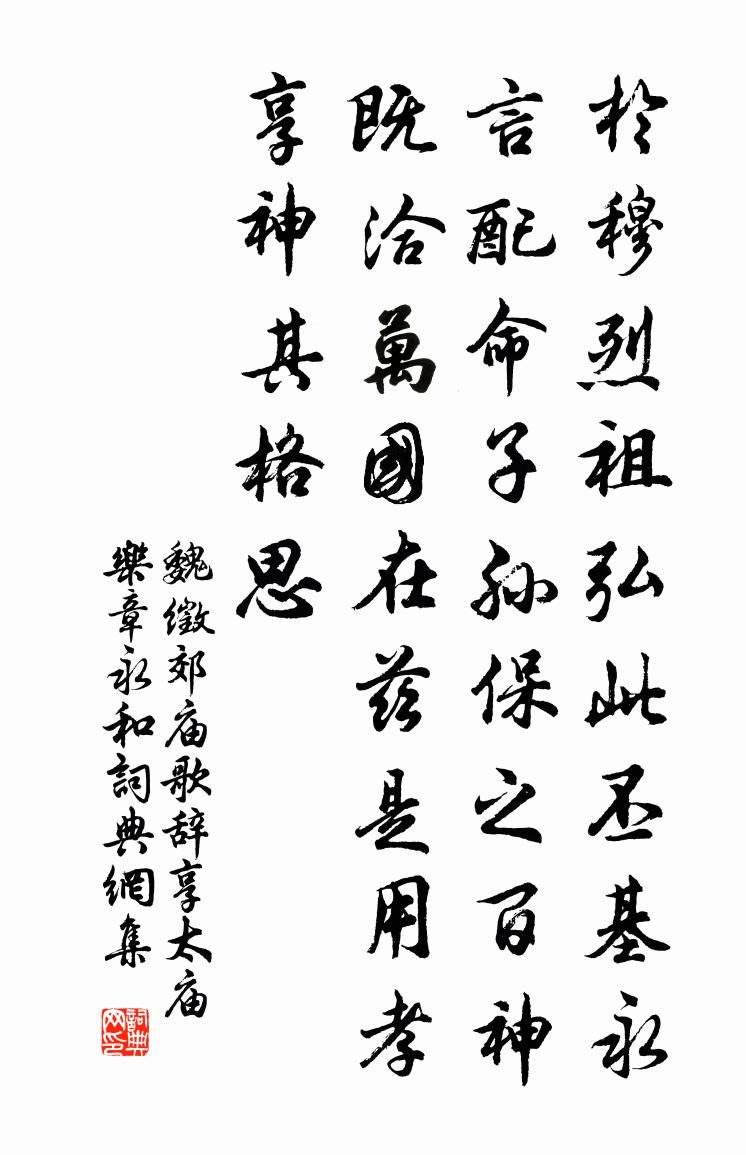 於穆烈祖弘此丕基永
言配命子孙保之百神
既洽萬國在兹是用孝
享神其格思
魏徵郊庙歌辞享太庙
樂章永和詞典網集
詞典网印